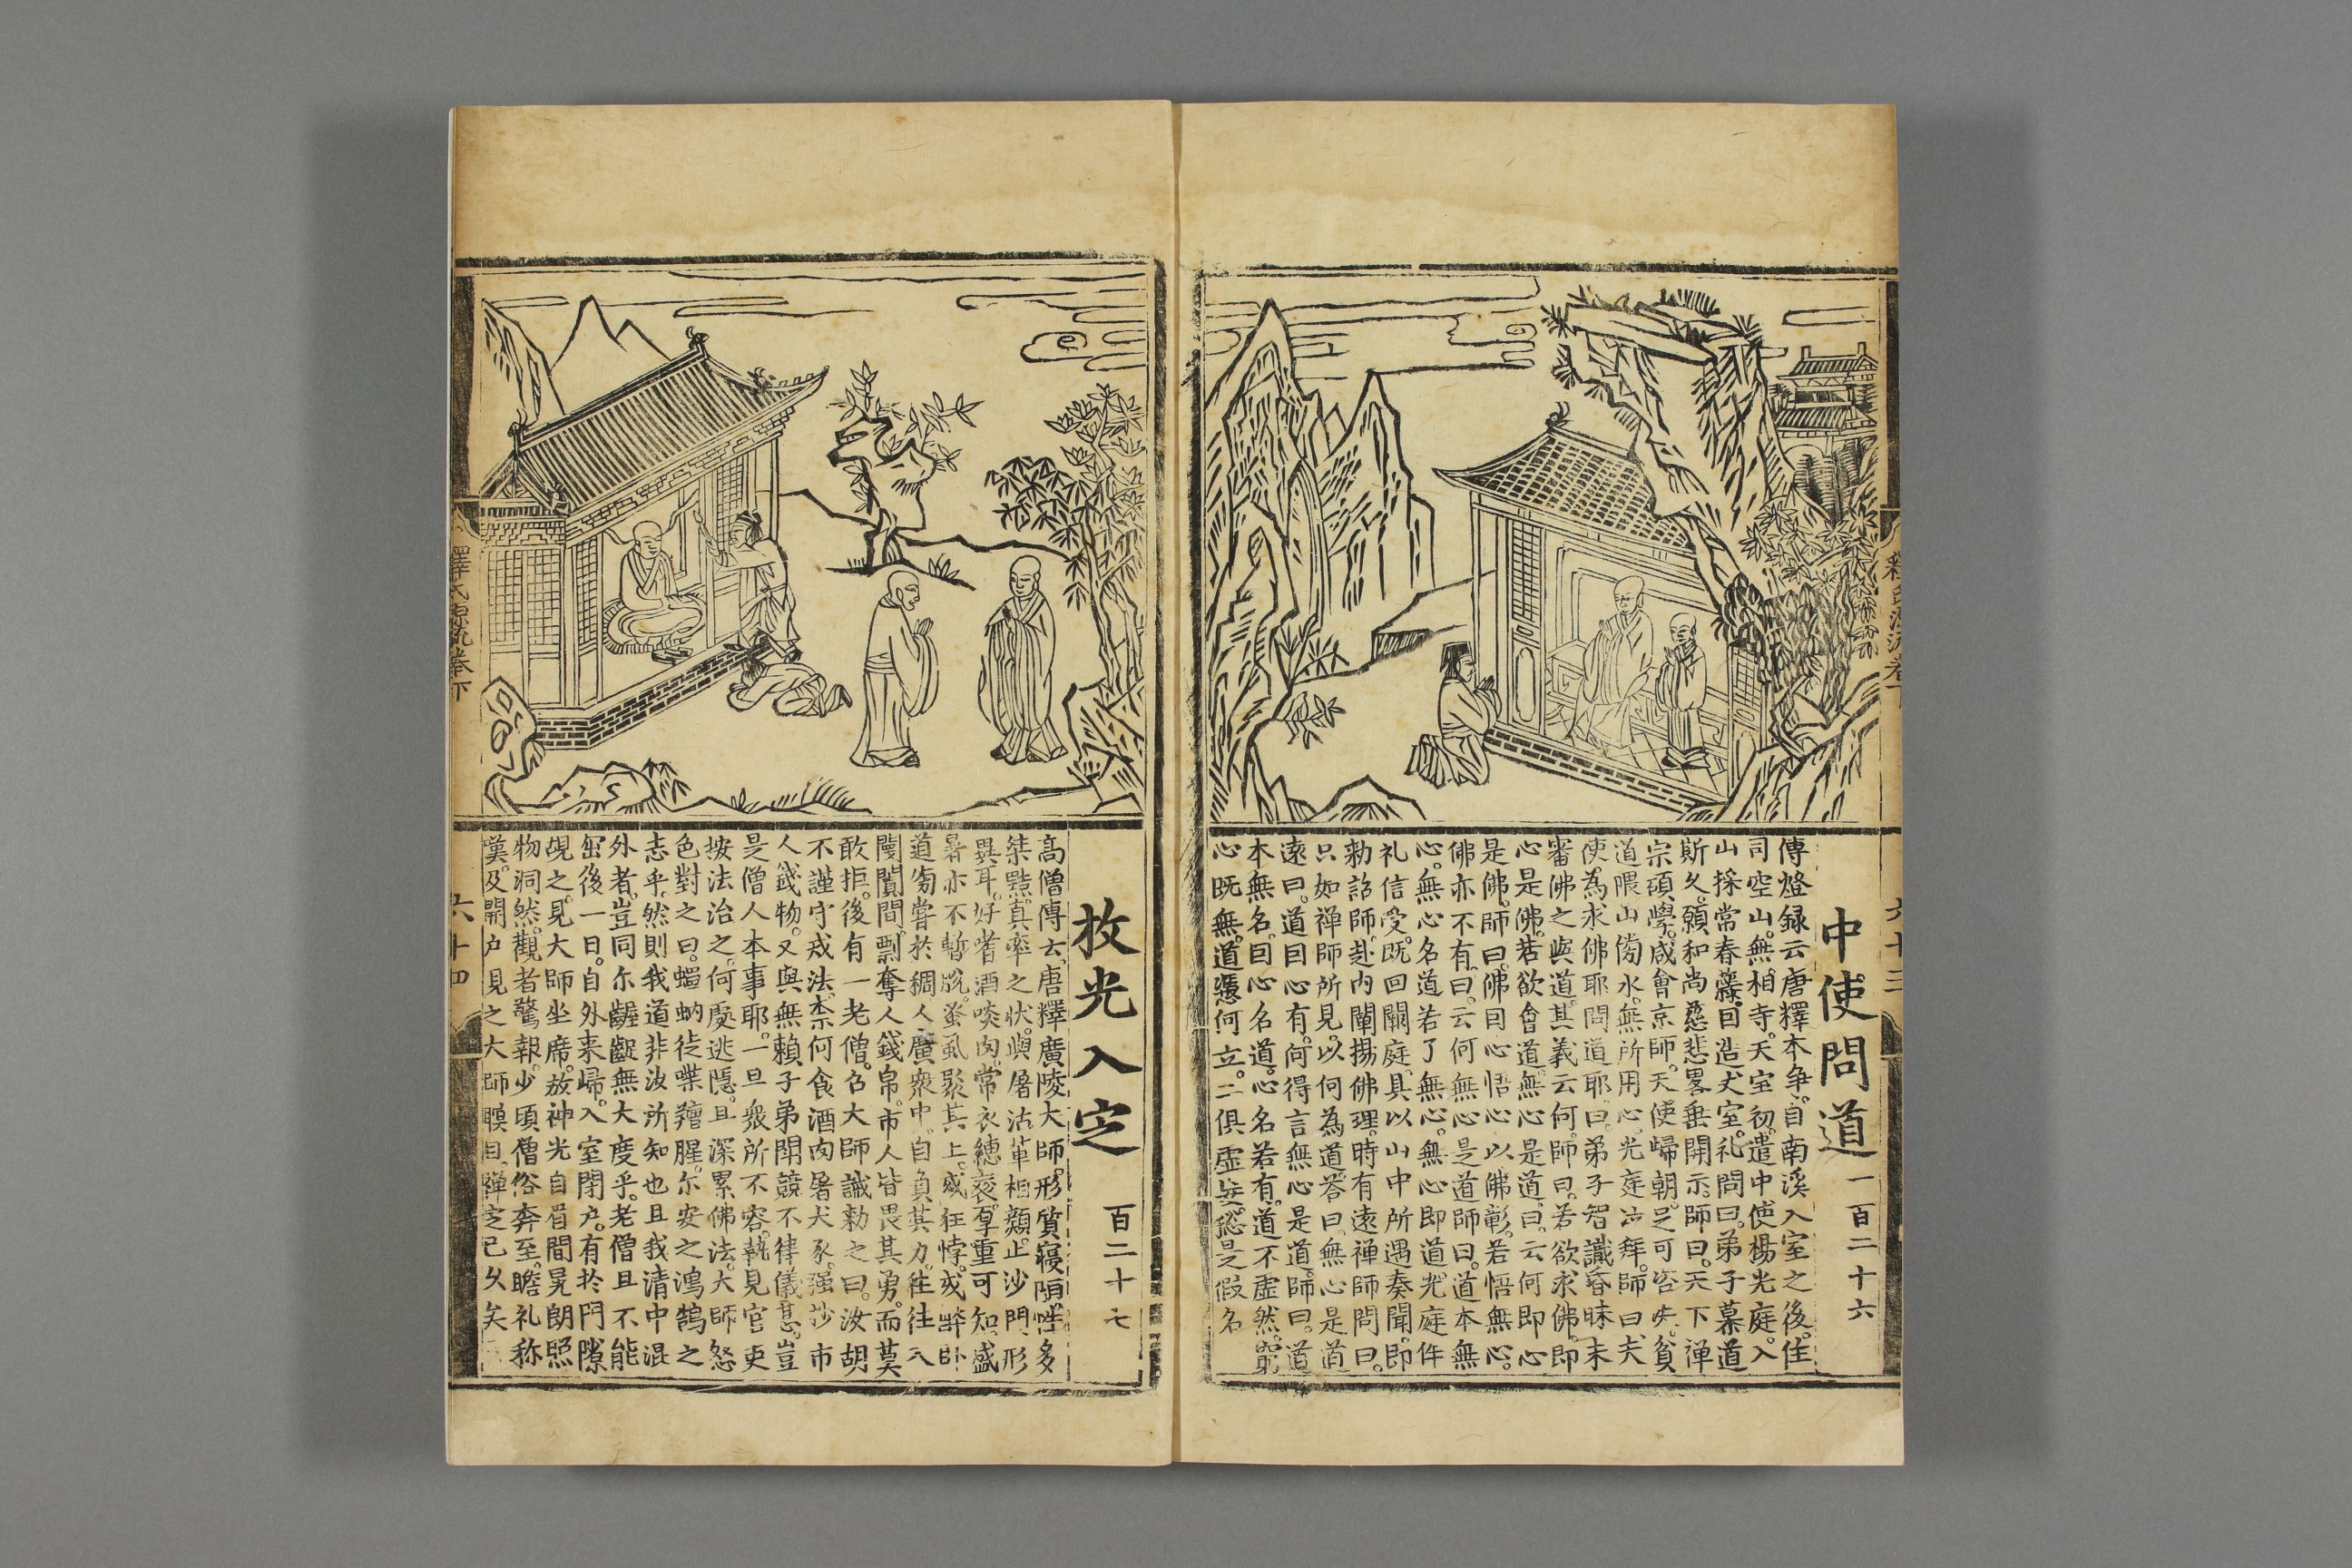 中使問道 一百二十六
傳燈録云唐釋本争自南溪入室之後住
司空山無相寺天宝初遣中使楊光庭入
山採常春藤因造丈室礼問曰弟子慕道
斯久願和尚慈悲畧垂開示師曰天下禅
宗碩學咸會京師天使歸朝足可咨决貧
道隈山傍水無所用心光庭泣拜師曰夫
使為求佛耶問道耶曰弟子智識昏昧未
審佛之與道其義云何師曰若欲求佛即
心是佛若欲會道無心是道曰云何即心
是佛師曰佛因心悟心以佛彰若悟無心
佛亦不有曰云何無心是道師曰道本無
心無心名道若了無心無心即道光庭作
礼信受既回闕庭具以山中所遇奏聞即
勅詔師赴內闡揚佛理時有遠禅師問曰
只如禅師所見以何為道答曰無心是道
遠曰道因心有何得言無心是道師曰道
本無名因心名道心名若有道不虛然窮
心既無道憑何立二俱虛妄緫是假名
釋氏源流卷下
六十三
放光入定 百二十七
高僧傳云唐釋廣陵大師形質寢陋性多
桀黠真率之状與屠沽輩相類止沙門形
異耳好嗜酒啖肉常衣繐裘厚重可知盛
暑亦不暫脱蚤虱聚其上或狂悖或醉卧
道傍嘗於稠人廣衆中自負其力往往入
闤闠間剽奪人錢帛市人皆畏其勇而莫
敢拒後有一老僧召大師誡勅之曰汝胡
不謹守戒法柰何食酒肉屠犬豕强抄市
人錢物又與無賴子弟鬪競不律儀甚豈
是僧人本事耶一旦衆所不容執見官吏
按法治之何處逃隱且深累佛法大師怒
色對之曰蠅蚋徒喋羶腥尔安之鴻鵠之
志乎然則我道非汝所知也且我清中混
外者豈同尔齷齪無大度乎老僧且不能
屈後一日自外来歸入室閉户有於門隙
覘之見大師坐席放神光自眉間晃朗照
物洞然觀者驚報少頃僧俗奔至瞻礼称
嘆及開户見之大師瞑目禅定已久矣
釋氏源流卷下
六十四